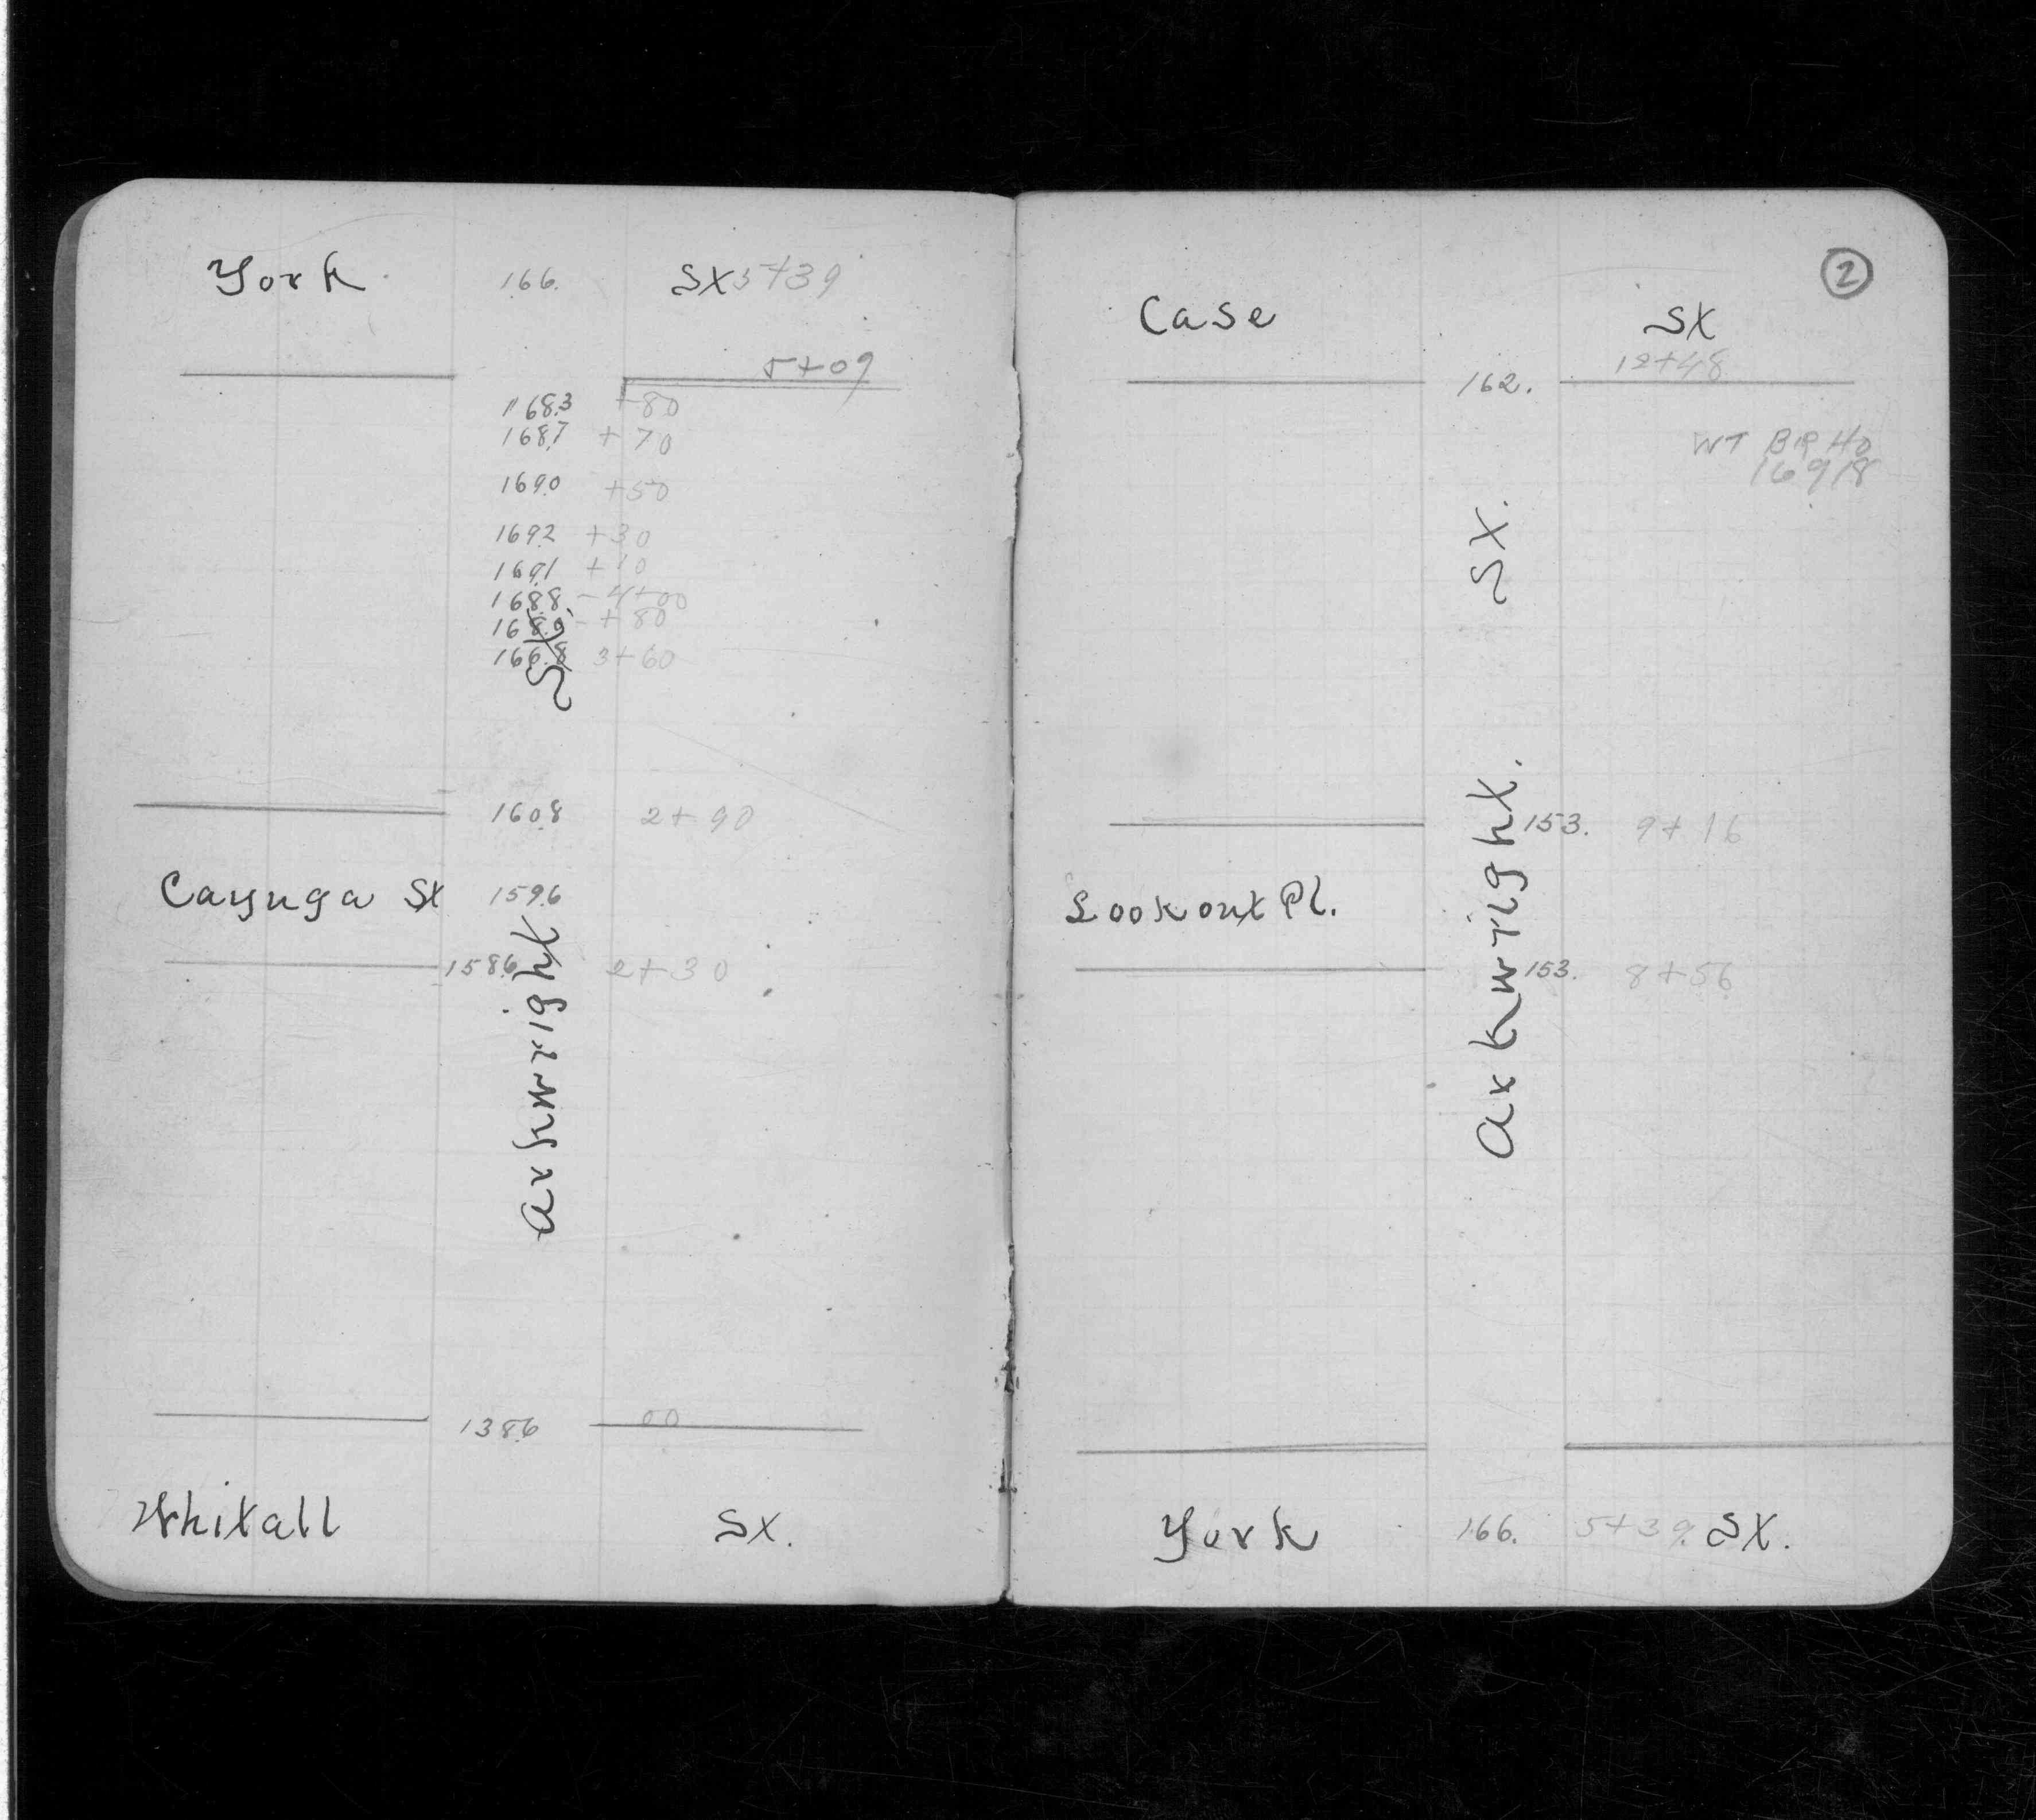 York 166. St 5+39
5+09
168.3 +80
168.7 +70
169.0 +50
169.2 +30
169.1 +10
168.8 - 4+00
168.0 - +80
166.8 3+60
160.8 2+90
Cayuga St 159.6
158.6 2+30
Arkwright St.
138.6 00
Whitall St.
2
Case St
12+48
162.
WT BR HO
169.18
Arkwright. St.
153. 9+16
Lookout Pl.
153. 8+56
York 166. 5+39 St.